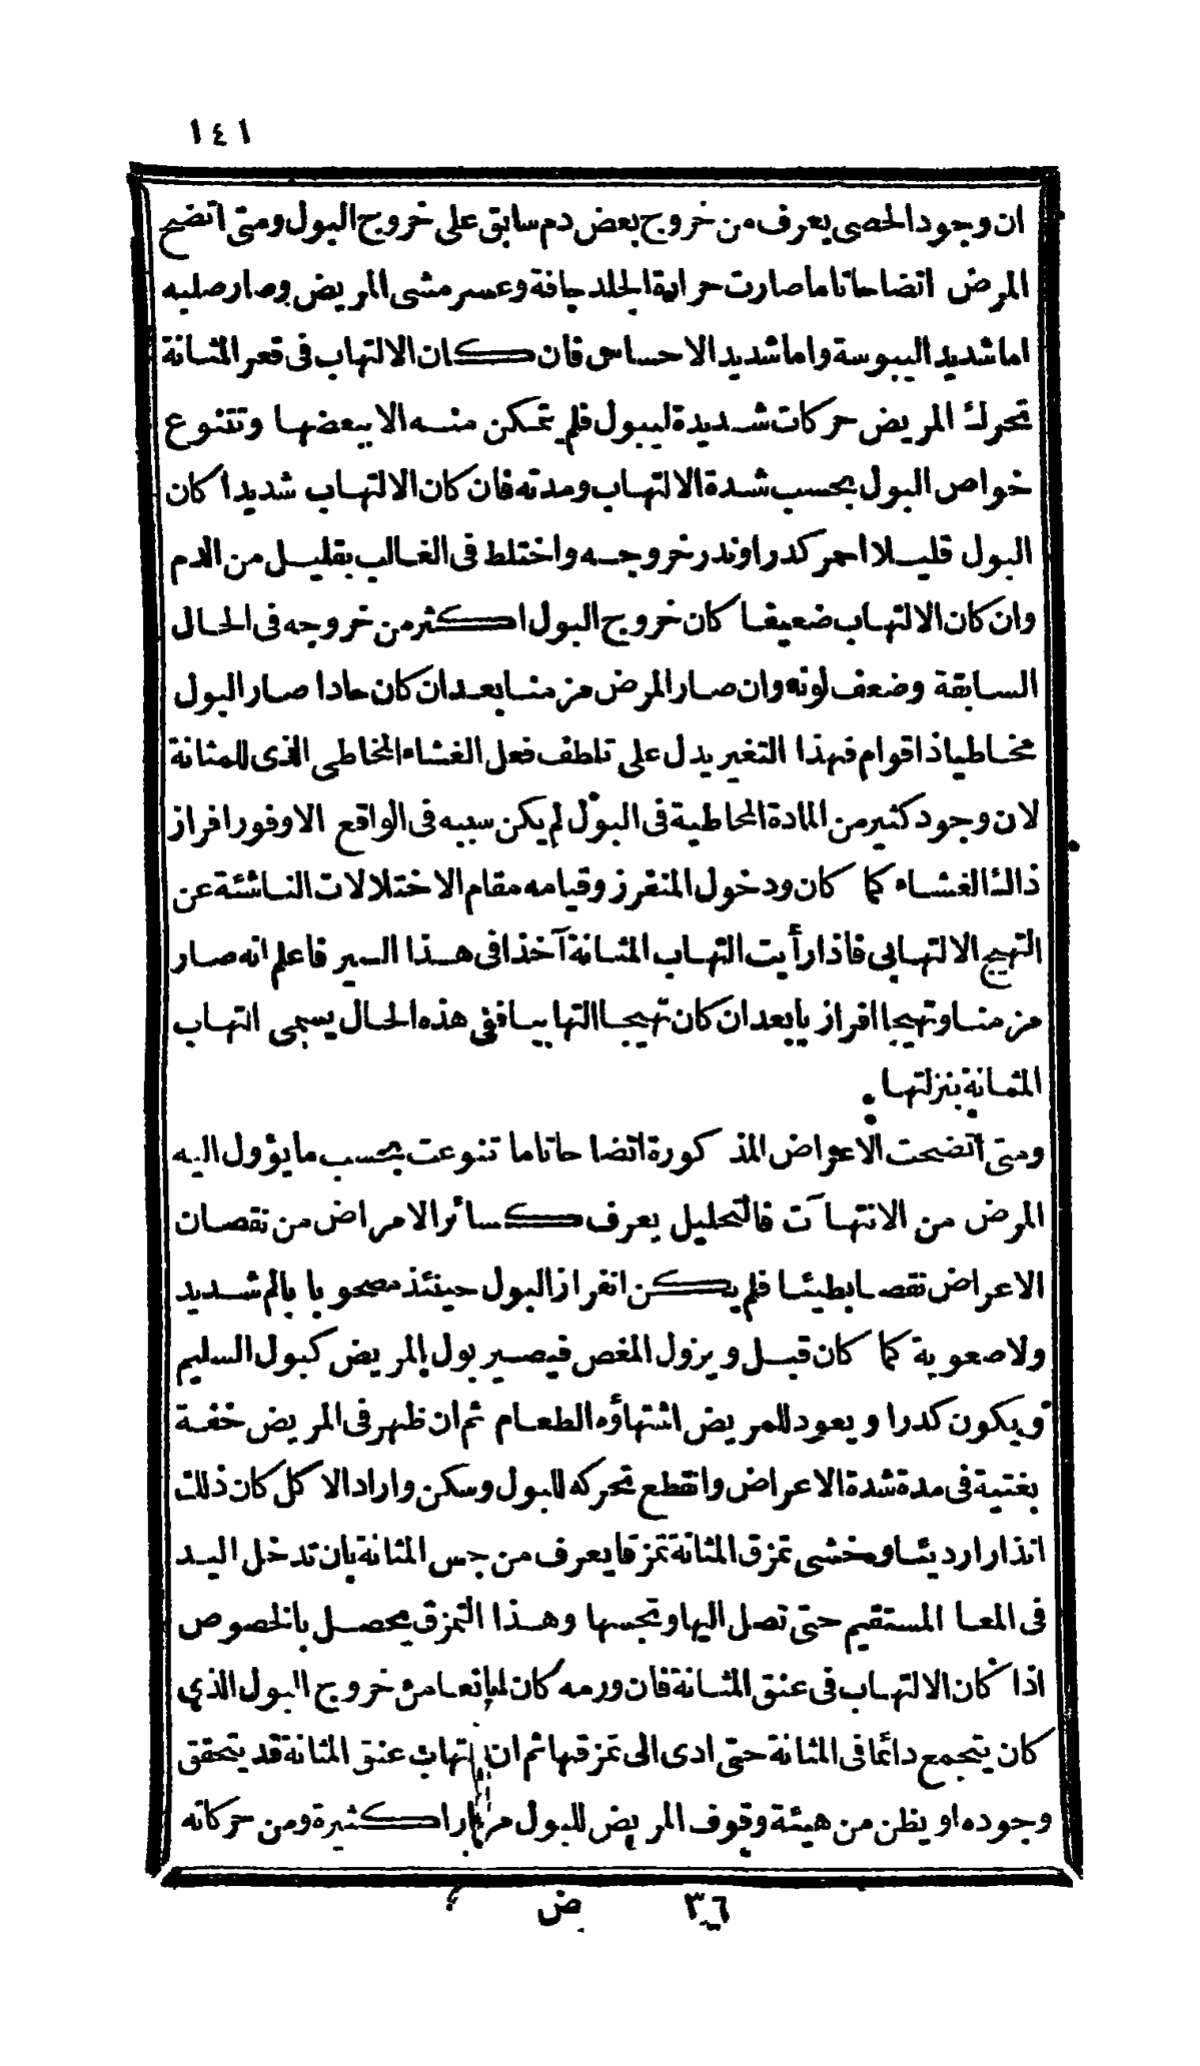 ١٤١
ان وجود الحصى يعرف من خروج بعض دم سابق على خروج البول ومتى اتضح
المرض اتضاحا تاما صارت حرارة الجلد جافة وعسر مشى المريض وصار صلبه
اما شديد اليبوسة واما شديد الاحساس فان كان الالتهاب فى قعر المثانة
تحرك المريض حركات شديدة ليبول فلم يتمكن منه الا ببعضها وتتنوع
خواص البول بحسب شدة الالتهاب ومدته فان كان الالتهاب شديدا كان
البول قليلا احمر كدرا وندر خروجه واختلط فى الغالب بقليل من الدم
وان كان الالتهاب ضعيفا كان خروج البول اكثر من خروجه فى الحال
السابقة وضعف لونه وان صار المرض مزمنا بعد ان كان حادا صار البول
مخاطيا ذا قوام فهذا التغير يدل على تلطف فعل الغشاء المخاطى الذى للمثانة
لان وجود كثير من المادة المخاطية فى البول لم يكن سببه فى الواقع الا وفور افراز
ذالك الغشاء كما كان ودخول المنفرز وقيامه مقام الاختلالات الناشئة عن
التهيج الالتهابى فاذا رأيت التهاب المثانة آخذا فى هذا السير فاعلم انه صار
مزمنا وتهيجا افرازيا بعد ان كان تهيجا التهابيا ففى هذه الحال يسمى التهاب
المثانة بنزلتها .
ومتى اتضحت الاعراض المذكورة اتضاحا تاما تنوعت بحسب ما يؤول اليه
المرض من الانتهاآت فالتحليل يعرف كسائر الامراض من نقصان
الاعراض نقصا بطيئا فلم يكن انفراز البول حينئذ مصحوبا بالم شديد
ولا صعوبة كما كان قبل ويزول المغص فيصير بول المريض كبول السليم
ويكون كدرا ويعود للمريض اشتهاؤه الطعام ثم ان ظهر فى المريض خفة
بغتية فى مدة شدة الاعراض وانقطع تحركه للبول وسكن واراد الاكل كان ذلك
انذارا رديئا ومخشى تمزق المثانة تمزقا يعرف من جس المثانة بان تدخل اليد
فى المعا المستقيم حتى تصل اليها وتجسها وهذا التمزق يحصل بالخصوص
اذا كان الالتهاب فى عنق المثانة فان ورمه كان مانعا من خروج البول الذي
كان يتجمع دائما فى المثانة حتى ادى الى تمزقها ثم ان التهاب عنق المثانة قد يتحقق
وجوده او يظن من هيئة وقوف المريض للبول مرارا كثيرة ومن حركاته
٣٦ ض